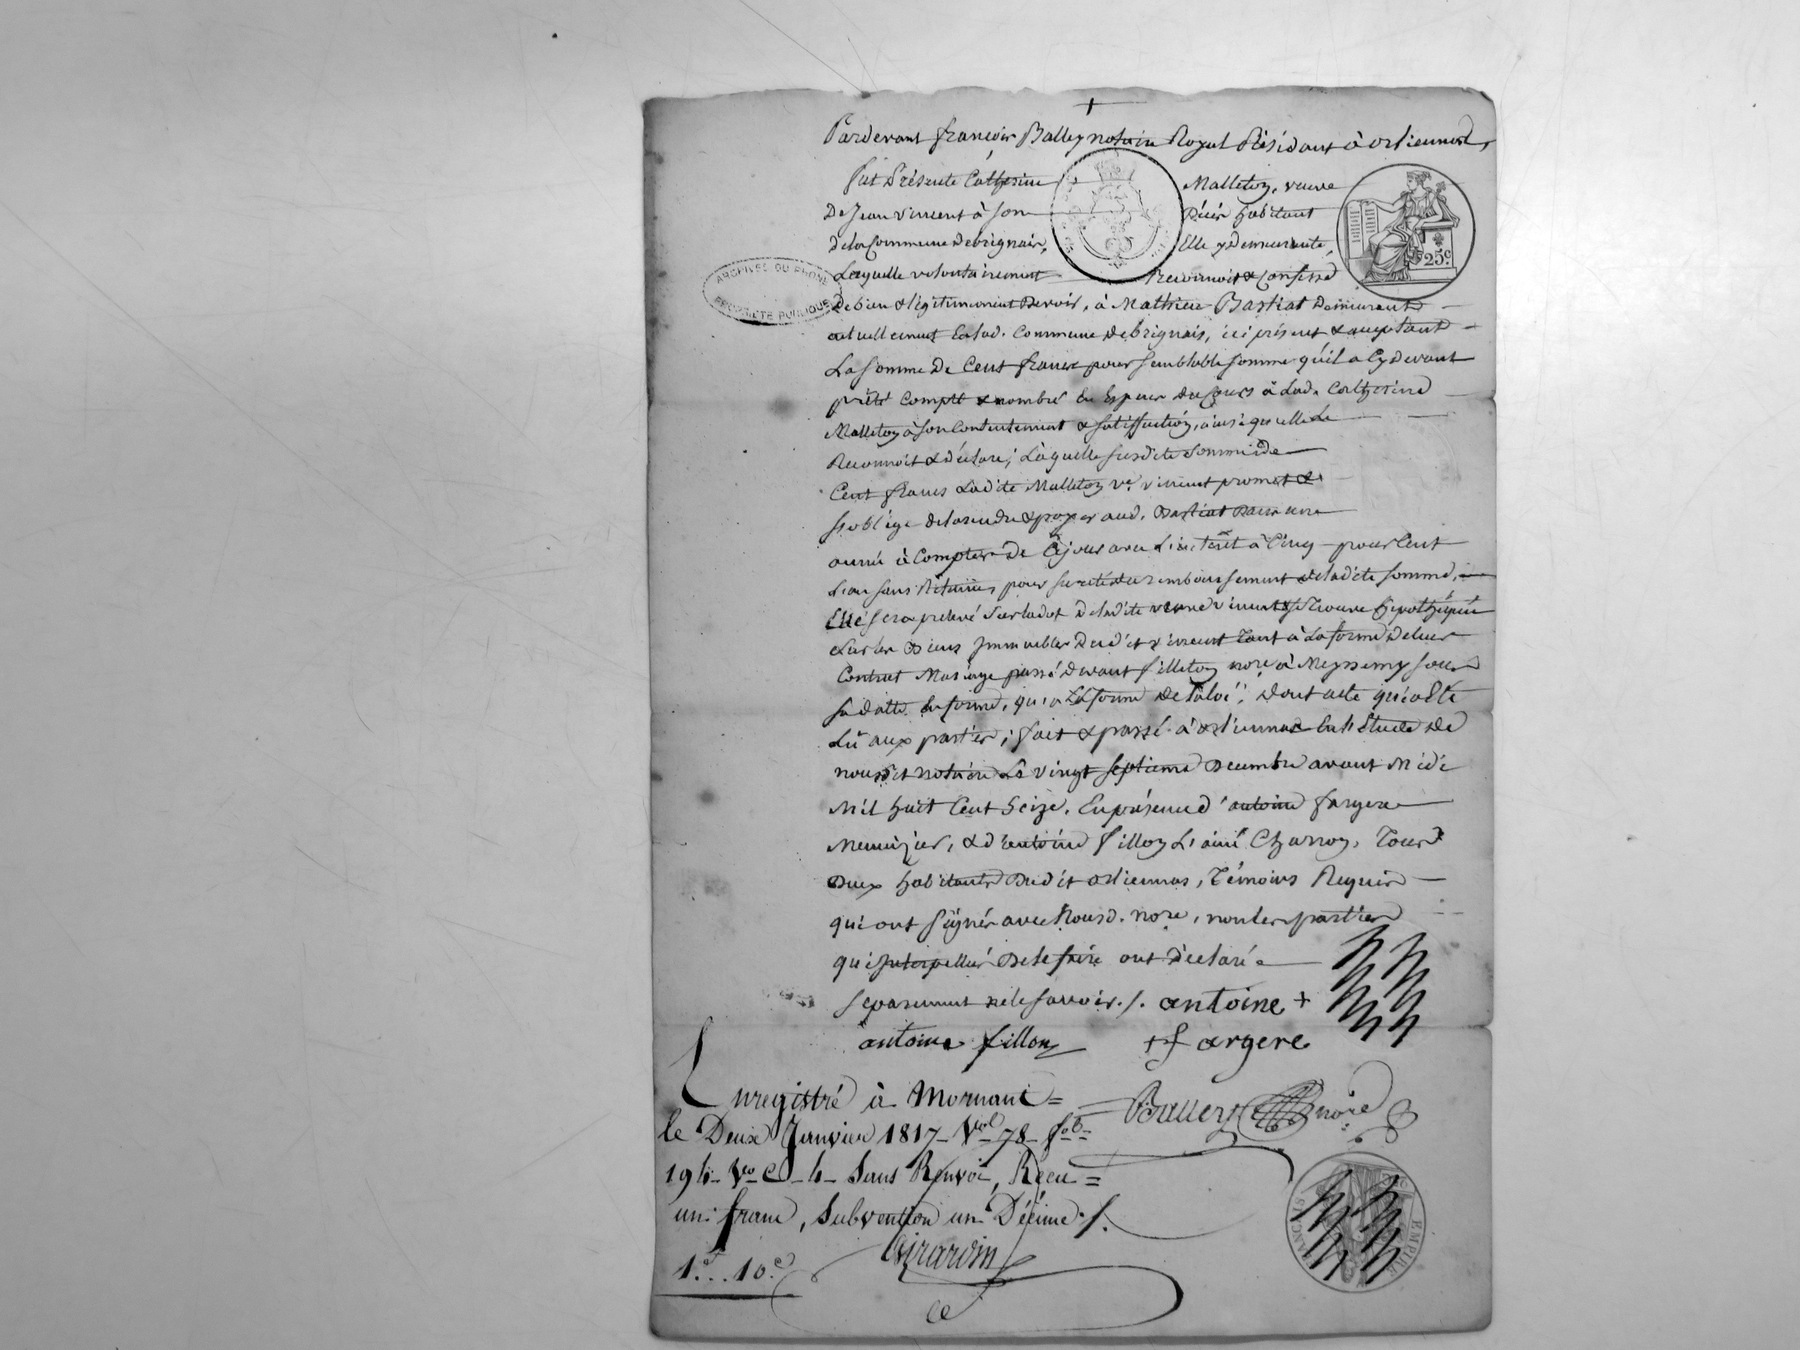 Pardevant françois Balley notaire Royal Résidant à orliennas,
fut Présente Catherine Malleton, veuve
De Jean vincent à son Décès habitant
de la Commune de brignais, Elle y demeurante,
Laquelle volontairement Reconnoit & Confesse
De bien & légitimement Devoir, à Mathieu Bastiat Demeurant
actuellement en lad. Commune de brignais, ici présent & acceptant
La somme De Cent francs pour semblable somme qu'il a Cy Devant
prêté Compté & nombré en Espèces de Cours à Lad. Catherine
Malleton à son Contentement & satisfaction, ainsi qu'elle Le
Reconnoit & déclare; Laquelle susdite somme de
Cent francs Ladite Malleton ve. vincent promet &
s'oblige de la rendre & payer aud. Bastiat Dans une
année à Compter De Ce jour avec L'intérêt à Cinq pour Cent
L'an sans Retenue, pour sureté du remboursement de ladite somme,
Elle sera prelevé sur la dot de ladite veuve vincent & se Trouve hypothéquée
sur les Biens Immeubles Dudit vincent Tant à La forme de leur
Contrat Mariage passé devant filleton nore à Meyssemy sous
sa datte en forme, qu'à La forme de la loi; Dont acte qui a Eté
Lû aux parties; fait & passé à orliennas En l'Etude De
nousdit notaire Le vingt septieme Decembre avant Midi
Mil huit Cent Seize. En présence d'antoine fargere
Menuizier, & d'antoine fillon L'ainé Charron, Tous
Deux habitants Dudit orliennas, Témoins Requis
qui ont signés avec Nousd. nore, non les parties
qui interpellés De le faire ont Déclaré
séparement ne le savoir ./. antoine +
antoine fillon + fargere
Enregistré à Mornant =
Balley nore
le Deux Janvier 1817 - Vol 78 fo
194 Vo C 4 Sans Renvoi, Reçu =
un franc, Subvention un Décime ./.
Girardin
1f..10c
ce
ARCHIVES DU RHONE
PROPRIETE PUBLIQUE
25c
EMPIRE FRANÇAIS